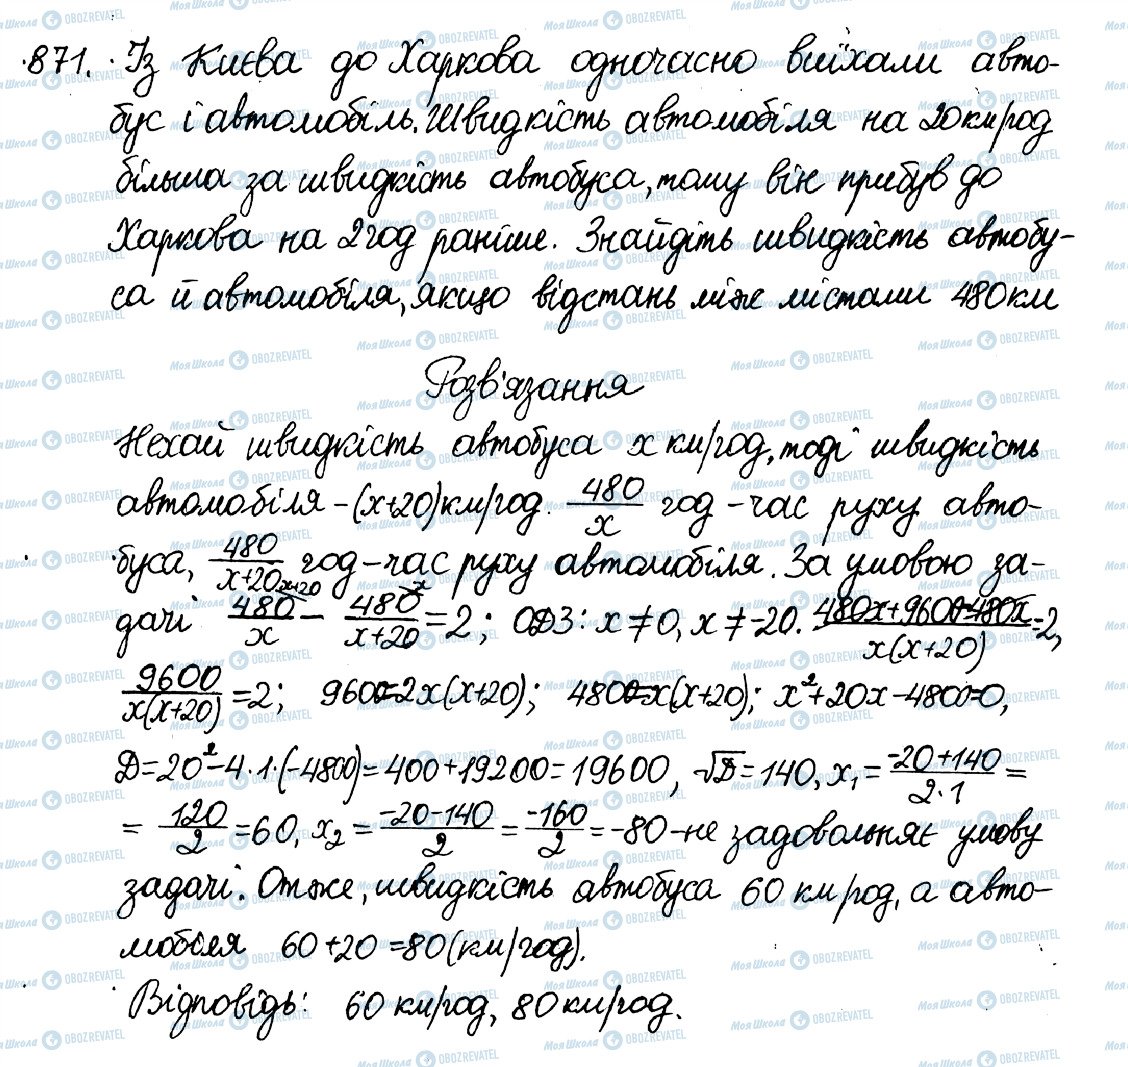 871. Із Києва до Харкова одночасно виїхали авто-
бус і автомобіль. Швидкість автомобіля на 20 км/год
більша за швидкість автобуса, тому він прибув до
Харкова на 2 год раніше. Знайдіть швидкість автобу-
са й автомобіля, якщо відстань між містами 480 км
Розв'язання
Нехай швидкість автобуса x км/год, тоді швидкість
автомобіля - (x+20) км/год. 480/x год - час руху авто-
буса, 480/(x+20) год - час руху автомобіля. За умовою за-
дачі 480/x (x+20) - 480/(x+20) (x) = 2; ОДЗ: x ≠ 0, x ≠ -20. (480x+9600-480x)/(x(x+20)) = 2,
9600/(x(x+20)) = 2; 9600=2x(x+20); 4800=x(x+20); x²+20x-4800=0,
D=20²-4·1·(-4800)=400+19200=19600, √D=140, x₁=(-20+140)/(2·1)=
=120/2=60, x₂=(-20-140)/2=-160/2=-80 - не задовольняє умову
задачі. Отже, швидкість автобуса 60 км/год, а авто-
мобіля 60+20=80 (км/год).
Відповідь: 60 км/год, 80 км/год.
МояШкола OBOZREVATEL